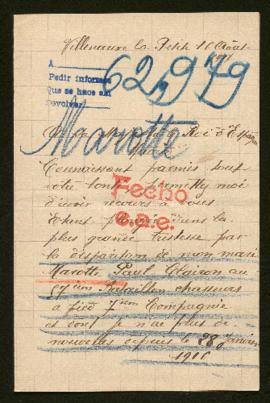 Villenauxe la Petite 16 Août
A
Pedir informes
Que se hace así
Devolver
62,979
Roi d'Espagne
Marotte
Connaissant parmis tous
votre bonté permettez moi
d'avoir recours à vous
Etant plongée dans la
plus grande tristesse par
Fecho
la disparition de mon mari
Marotte Paul
Bataillon chasseurs
à pied 7ieme Compagnie
et dont je n'ai plus de
nouvelles depuis le 28 Janvier
1916